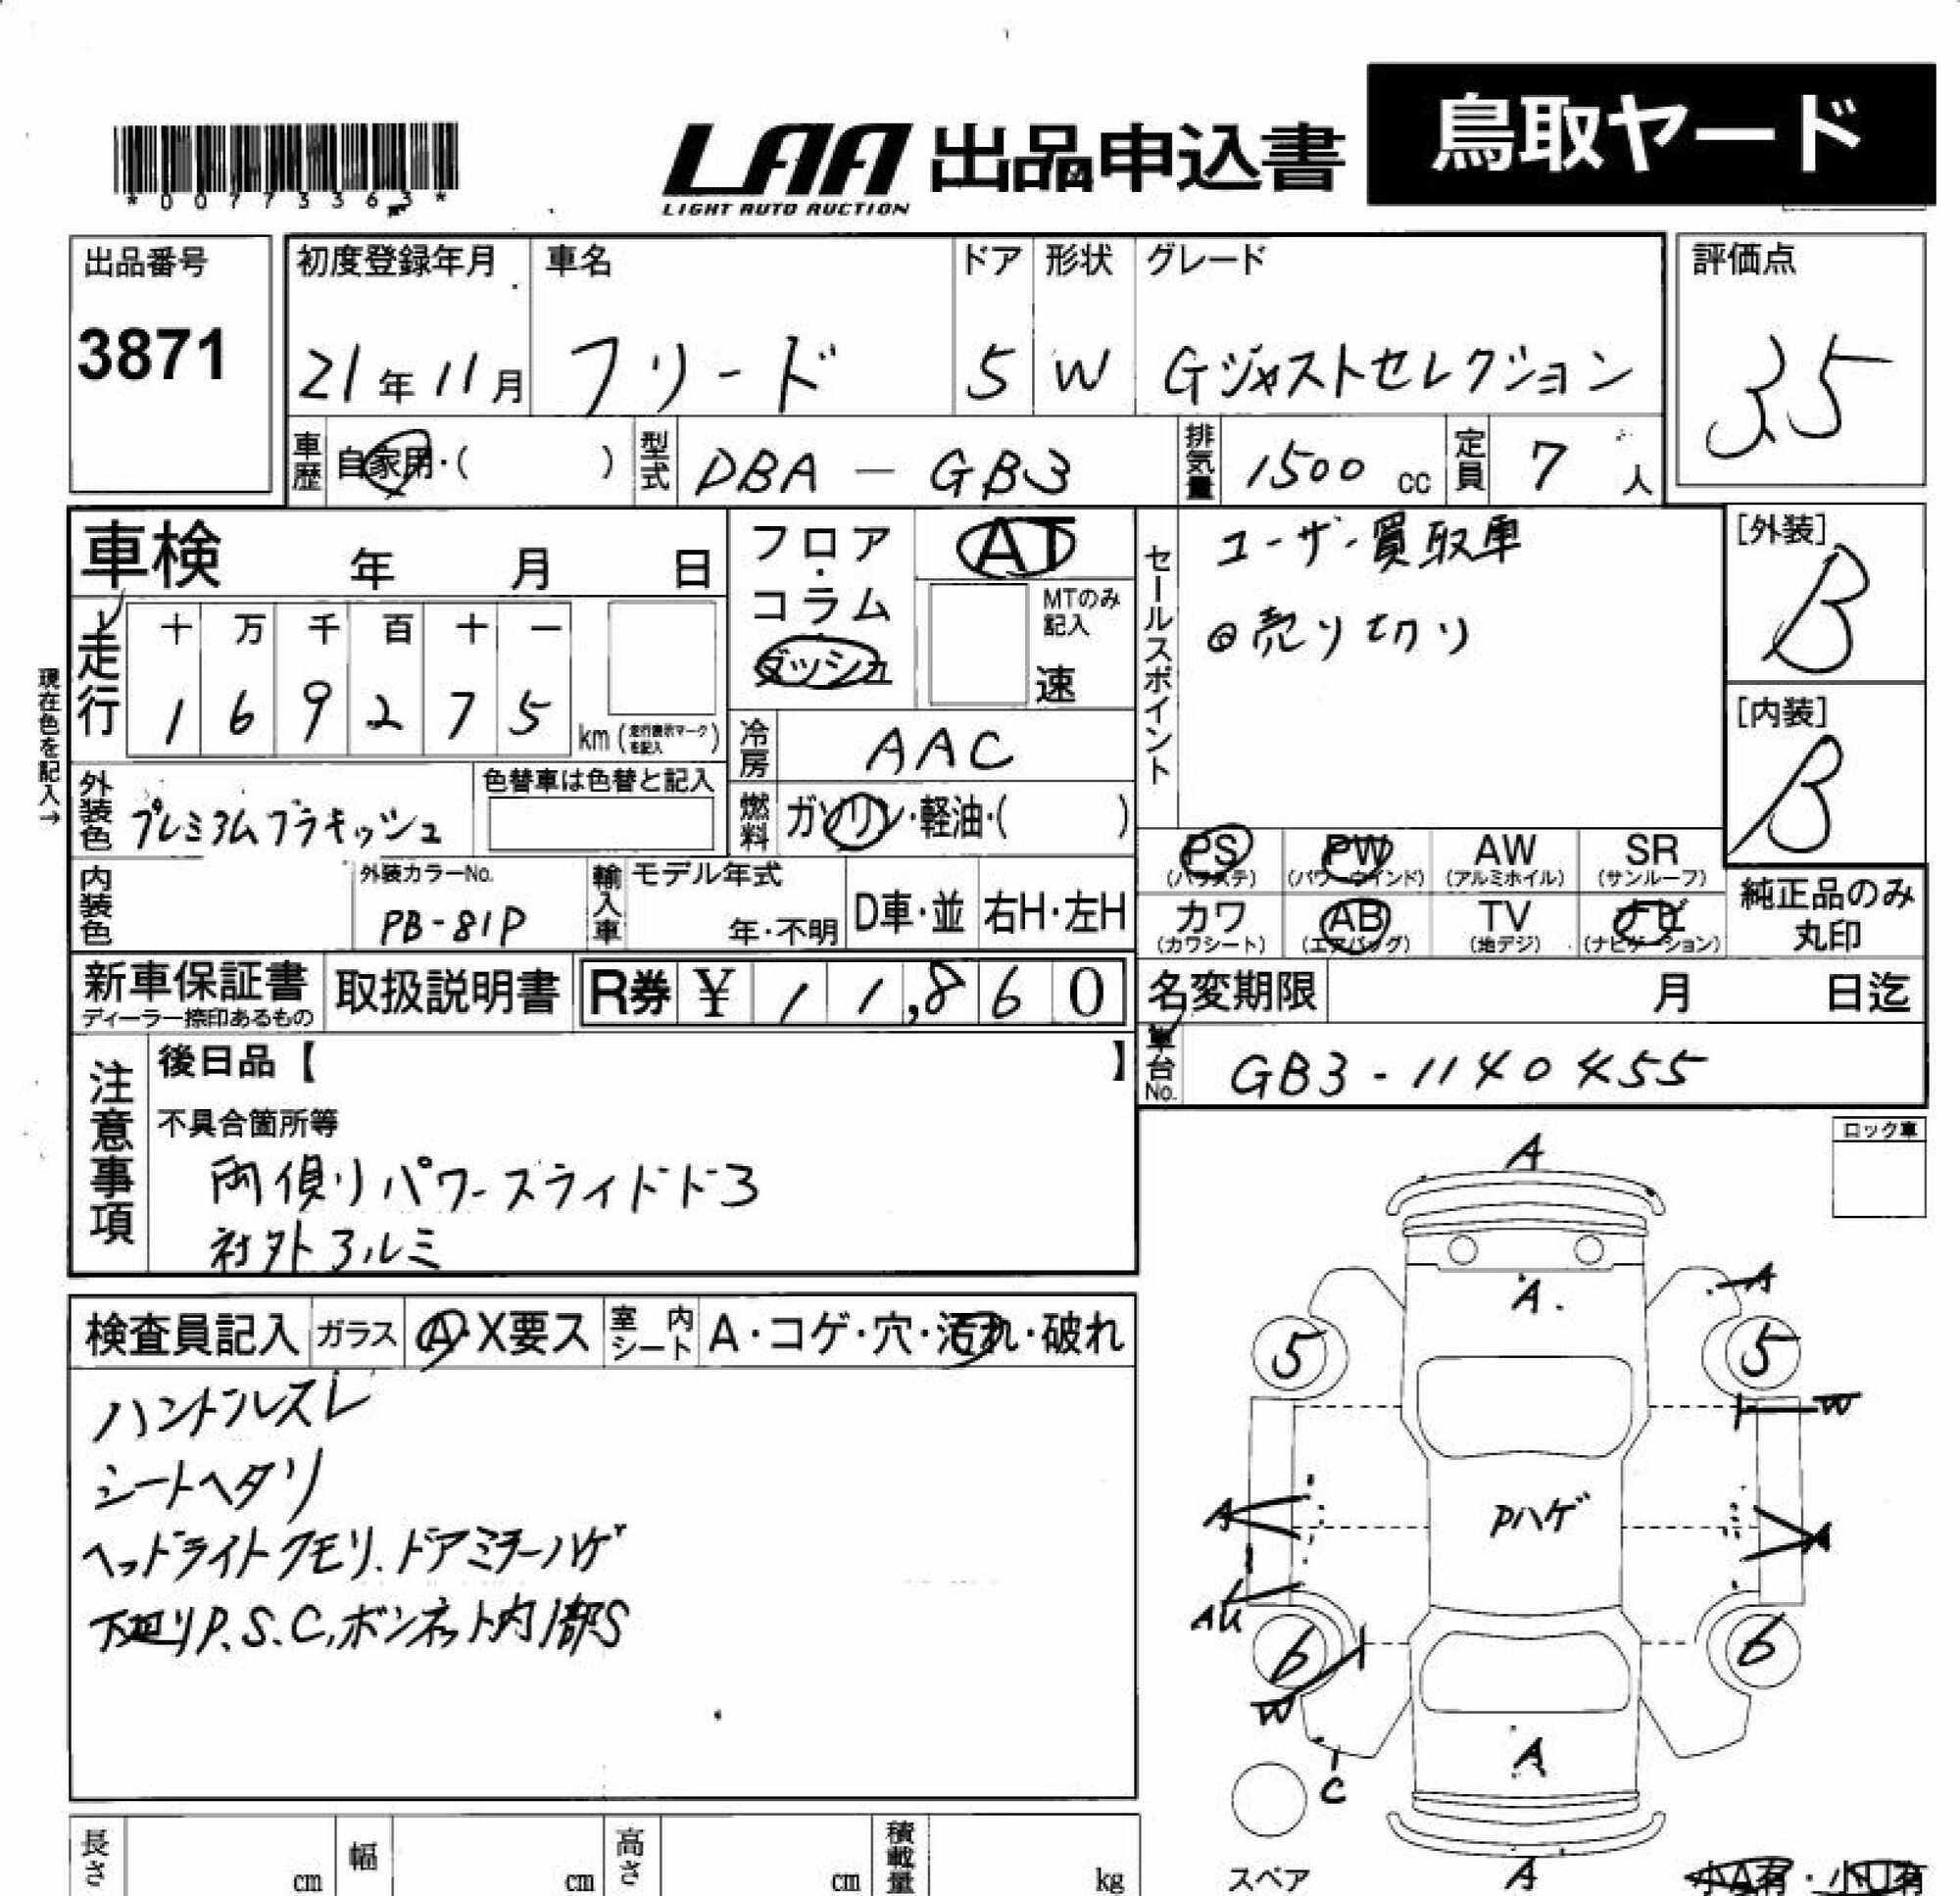 鳥取ヤード
LAA 出品申込書
LIGHT AUTO AUCTION
*00773363*
出品番号
3871
初度登録年月
21年11月
車名
フリード
ドア
5
形状
W
グレード
Gジャストセレクション
評価点
3.5
車歴 自家用・( )
型式 DBA - GB3
排気量 1500 cc
定員 7 人
車検 年 月 日
フロア・コラム
ダッシュ
AT
MTのみ記入
速
セールスポイント
ユーザー買取車
◎売り切り
[外装]
B
[内装]
B
現在色を記入→
走行
十 万 千 百 十 一
1 6 9 2 7 5
km (走行表示マークを記入)
冷房 AAC
燃料 ガソリン・軽油・( )
外装色 プレミアムブラキッシュ
色替車は色替と記入
内装色
外装カラーNo.
PB-81P
輸入車
モデル年式
年・不明
D車・並
右H・左H
PS (パワステ)
PW (パワーウインド)
AW (アルミホイル)
SR (サンルーフ)
カワ (カワシート)
AB (エアバッグ)
TV (地デジ)
ナビ (ナビゲーション)
純正品のみ丸印
新車保証書
ディーラー捺印あるもの
取扱説明書
R券 ¥ 11,860
名変期限 月 日迄
車台No. GB3-1140455
注意事項
後日品【 】
不具合箇所等
両側パワースライドドア
社外アルミ
ロック車
検査員記入
ガラス A・X要ス
室内シート A・コゲ・穴・汚れ・破れ
ハンドルスレ
シートヘタリ
ヘッドライトクモリ、ドアミラーハゲ
下廻りP.S.C,ボンネット内1部S
A
A
A
5
5
W
A
Pハゲ
A
AU
6
6
W
C
A
A
スペア
小A有・小U有
長さ cm
幅 cm
高さ cm
積載量 kg